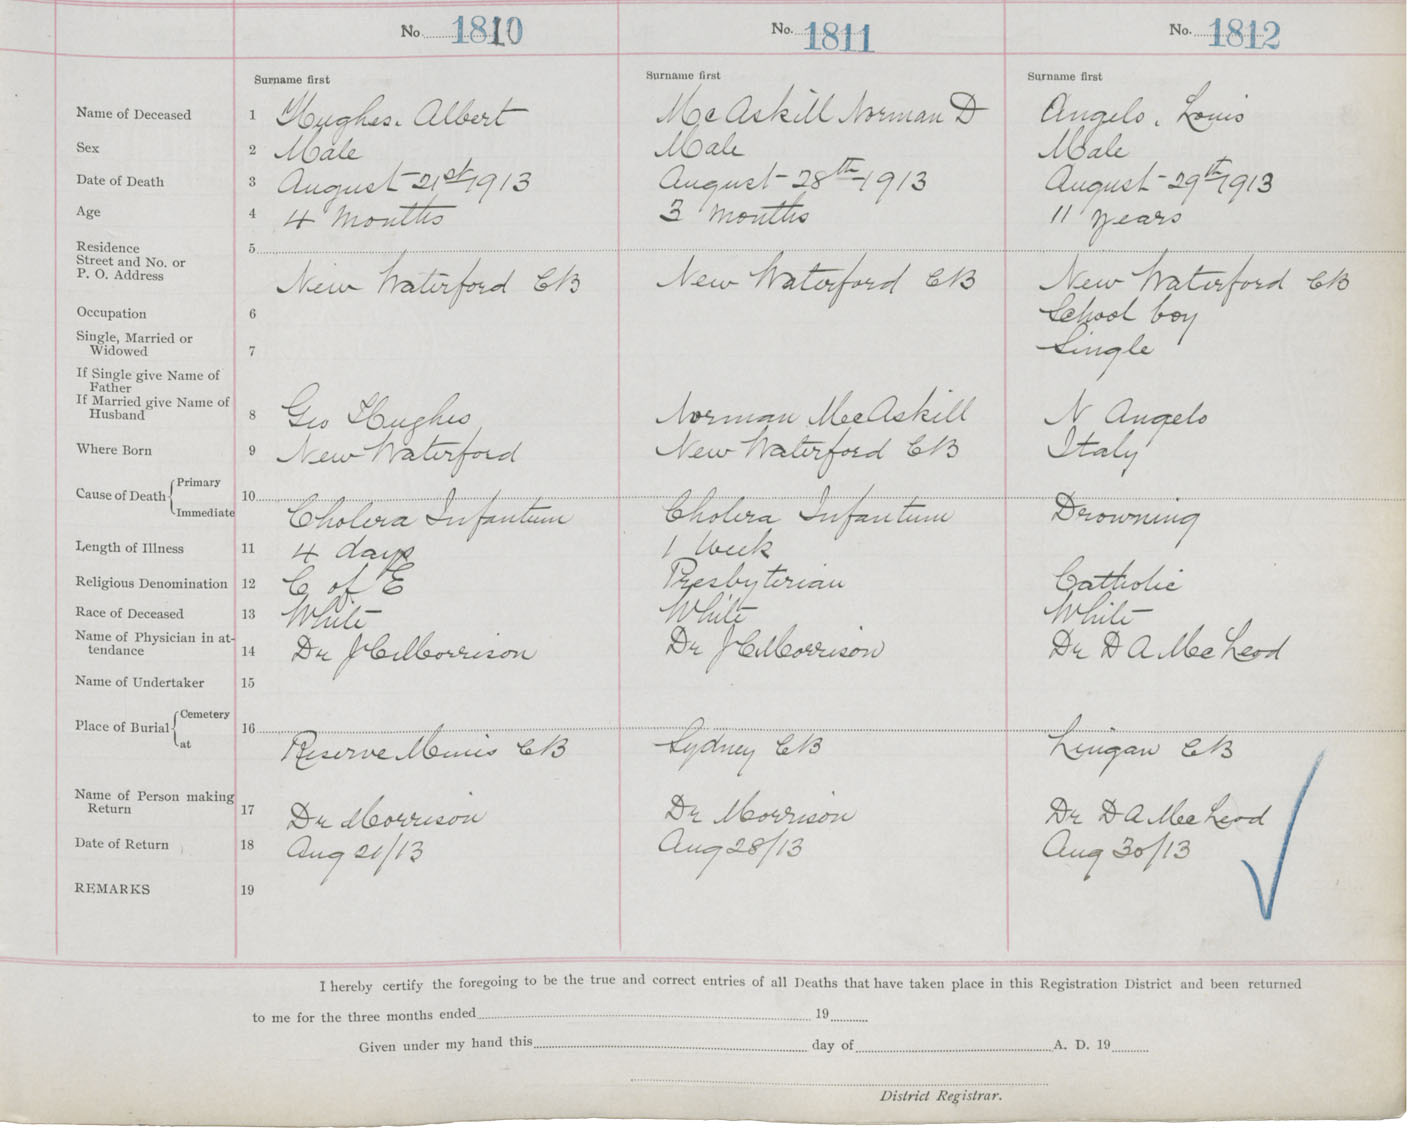 No. 1810 No. 1811 No. 1812
Surname first Surname first Surname first
Name of Deceased 1 Hughes. Albert McAskill Norman D Angelo, Louis
Sex 2 Male Male Male
Date of Death 3 August 21st 1913 August 28th 1913 August 29th 1913
Age 4 4 months 3 months 11 years
Residence 5
Street and No. or
P. O. Address
New Waterford CB New Waterford CB New Waterford CB
Occupation 6 School boy
Single, Married or
Widowed 7 Single
If Single give Name of
Father
If Married give Name of
Husband 8 Geo Hughes Norman McAskill N Angelo
Where Born 9 New Waterford New Waterford CB Italy
Cause of Death Primary 10
Immediate Cholera Infantum Cholera Infantum Drowning
Length of Illness 11 4 days 1 week
Religious Denomination 12 C of E Presbyterian Catholic
Race of Deceased 13 White White White
Name of Physician in at-
tendance 14 Dr J C Morrison Dr J C Morrison Dr D A McLeod
Name of Undertaker 15
Place of Burial Cemetery 16
at Reserve Mines CB Sydney CB Lingan CB
Name of Person making
Return 17 Dr Morrison Dr Morrison Dr D A McLeod
Date of Return 18 Aug 21/13 Aug 28/13 Aug 30/13
REMARKS 19
I hereby certify the foregoing to be the true and correct entries of all Deaths that have taken place in this Registration District and been returned
to me for the three months ended 19
Given under my hand this day of A. D. 19
District Registrar.